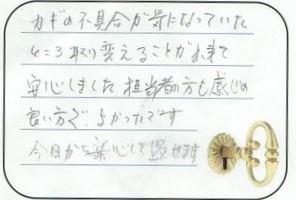 カギの不具合が気になっていた
取り変えることが出来て
安心しました 担当者の方も感じの
良い方で、よかったです
今日から安心して過せます